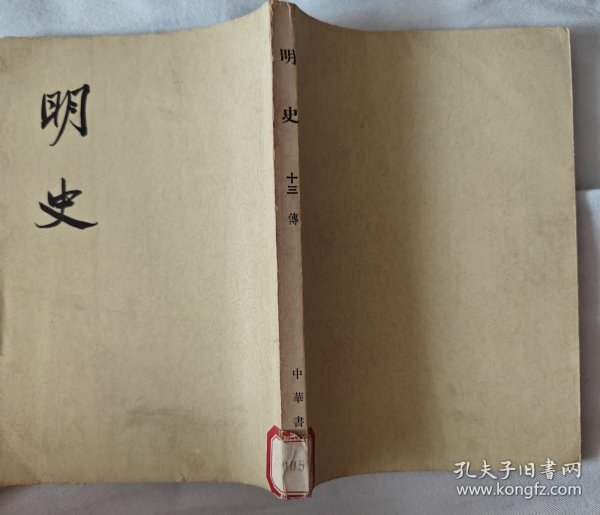 明史
明史
十三
傳
中華書
孔夫子旧书网
www.kongfz.com